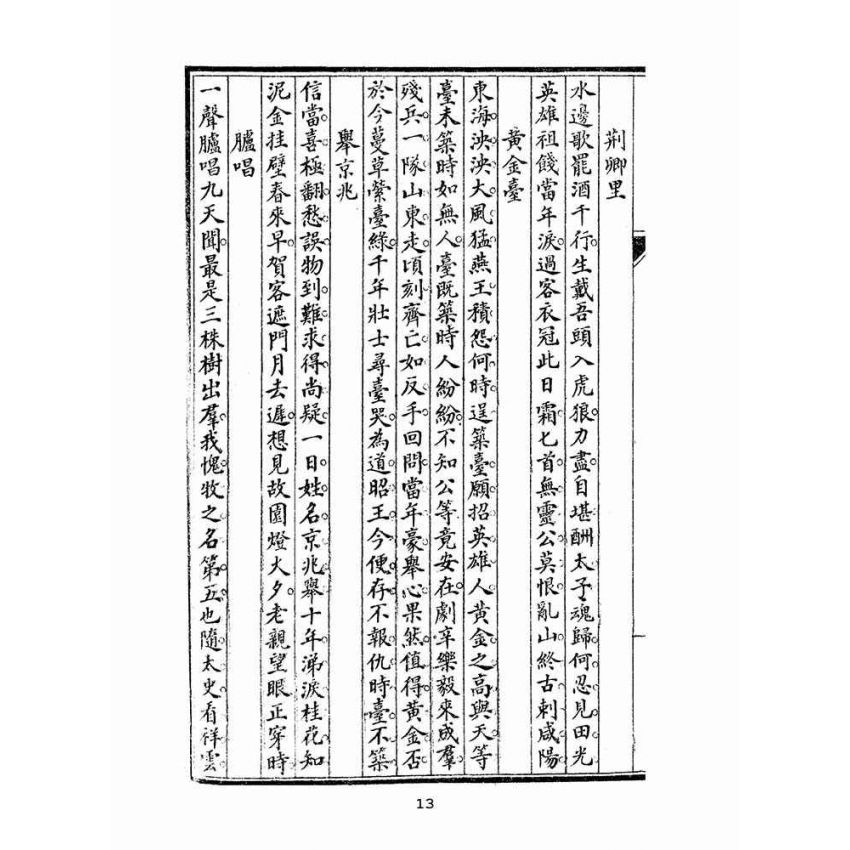 荆卿里
水邊歌罷酒千行生戴吾頭入虎狼力盡自堪酬太子魂歸何忍見田光
英雄祖餞當年淚過客衣冠此日霜匕首無靈公莫恨亂山終古刺咸陽
黃金臺
東海泱泱大風猛燕王積怨何時逞築臺願招英雄人黃金之高與天等
臺未築時如無人臺既築時人紛紛不知公等竟安在劇辛樂毅來成羣
殘兵一隊山東走頃刻齊亡如反手回問當年豪舉心果然值得黃金否
於今蔓草縈臺綠千年壯士尋臺哭為道昭王今便存不報仇時臺不築
舉京兆
信當喜極翻愁誤物到難求得尚疑一日姓名京兆舉十年涕淚桂花知
泥金挂壁春來早賀客遮門月去遲想見故園燈火夕老親望眼正穿時
臚唱
一聲臚唱九天聞最是三株樹出羣我愧牧之名第五也隨太史看祥雲
13